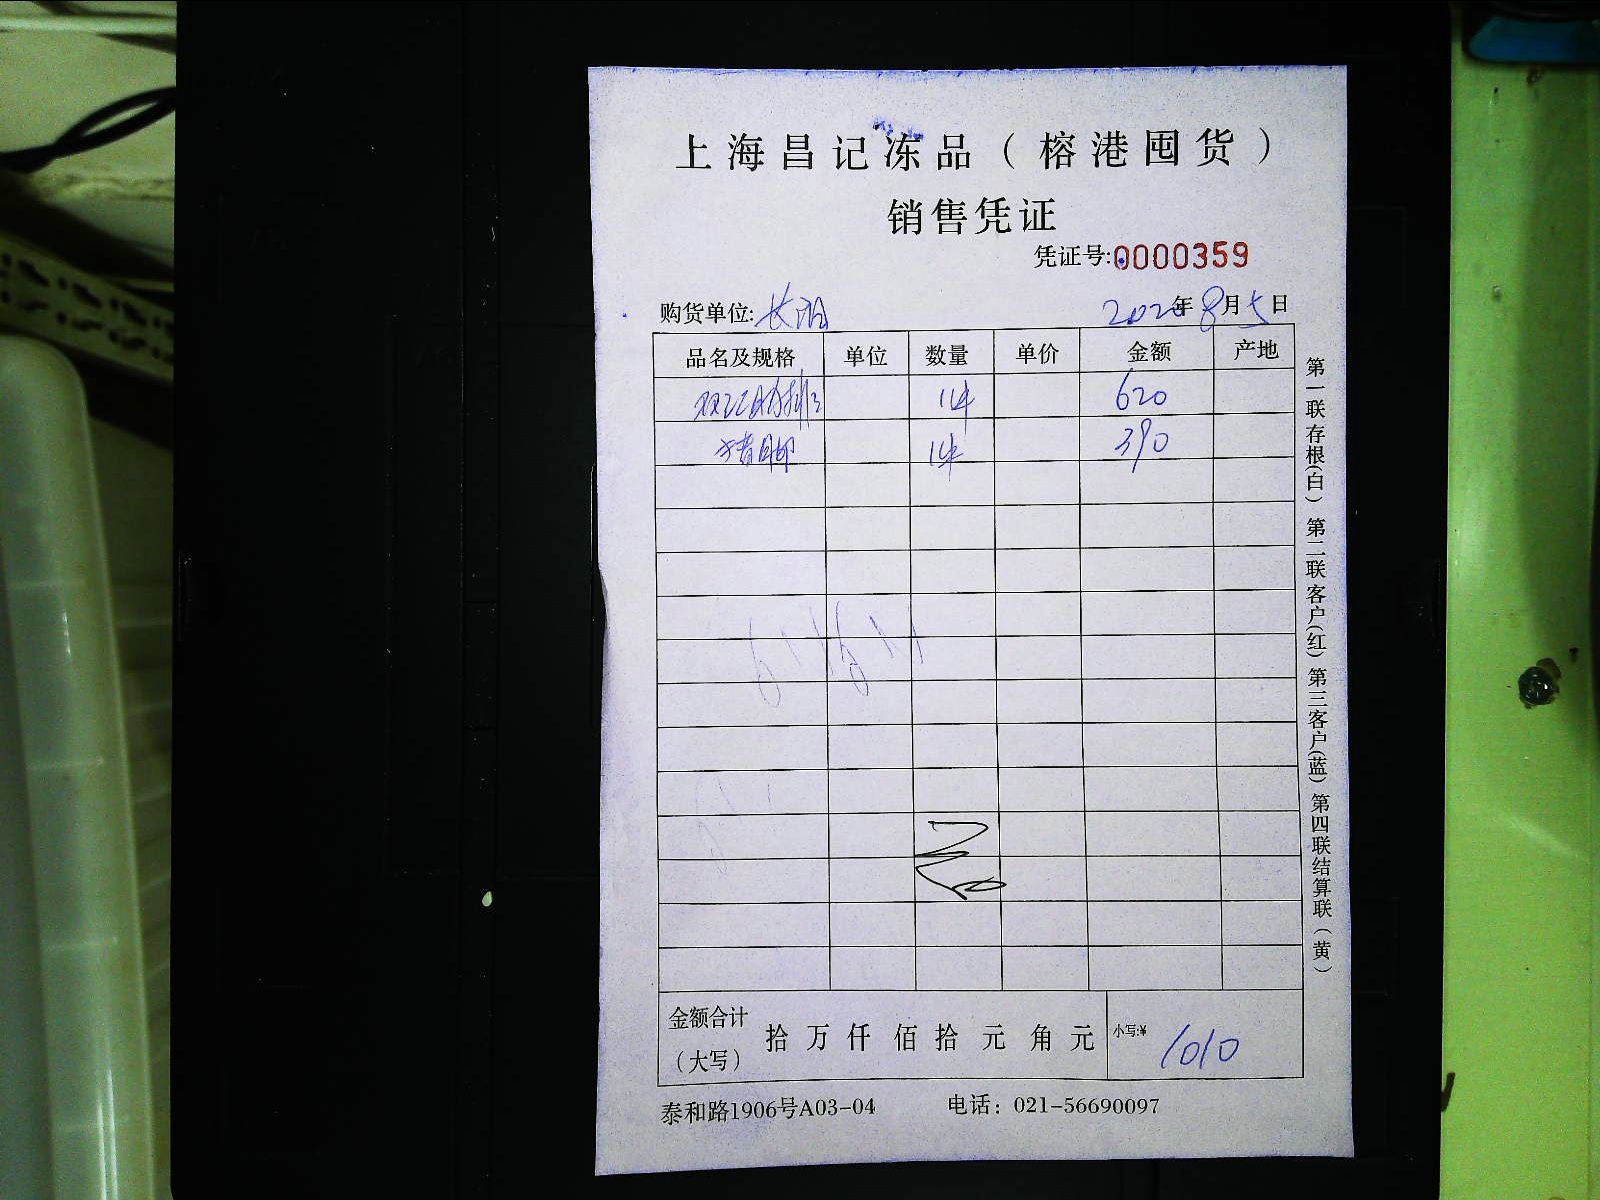 上海昌记冻品（榕港囤货）
销售凭证
凭证号:0000359
购货单位:长阳 2020年8月5日
品名及规格 单位 数量 单价 金额 产地
1件 620
1件 390
金额合计（大写） 拾 万 仟 佰 拾 元 角 元 小写:¥ 1010
泰和路1906号A03-04 电话：021-56690097
第一联存根(白) 第二联客户(红) 第三客户(蓝) 第四联结算联(黄)